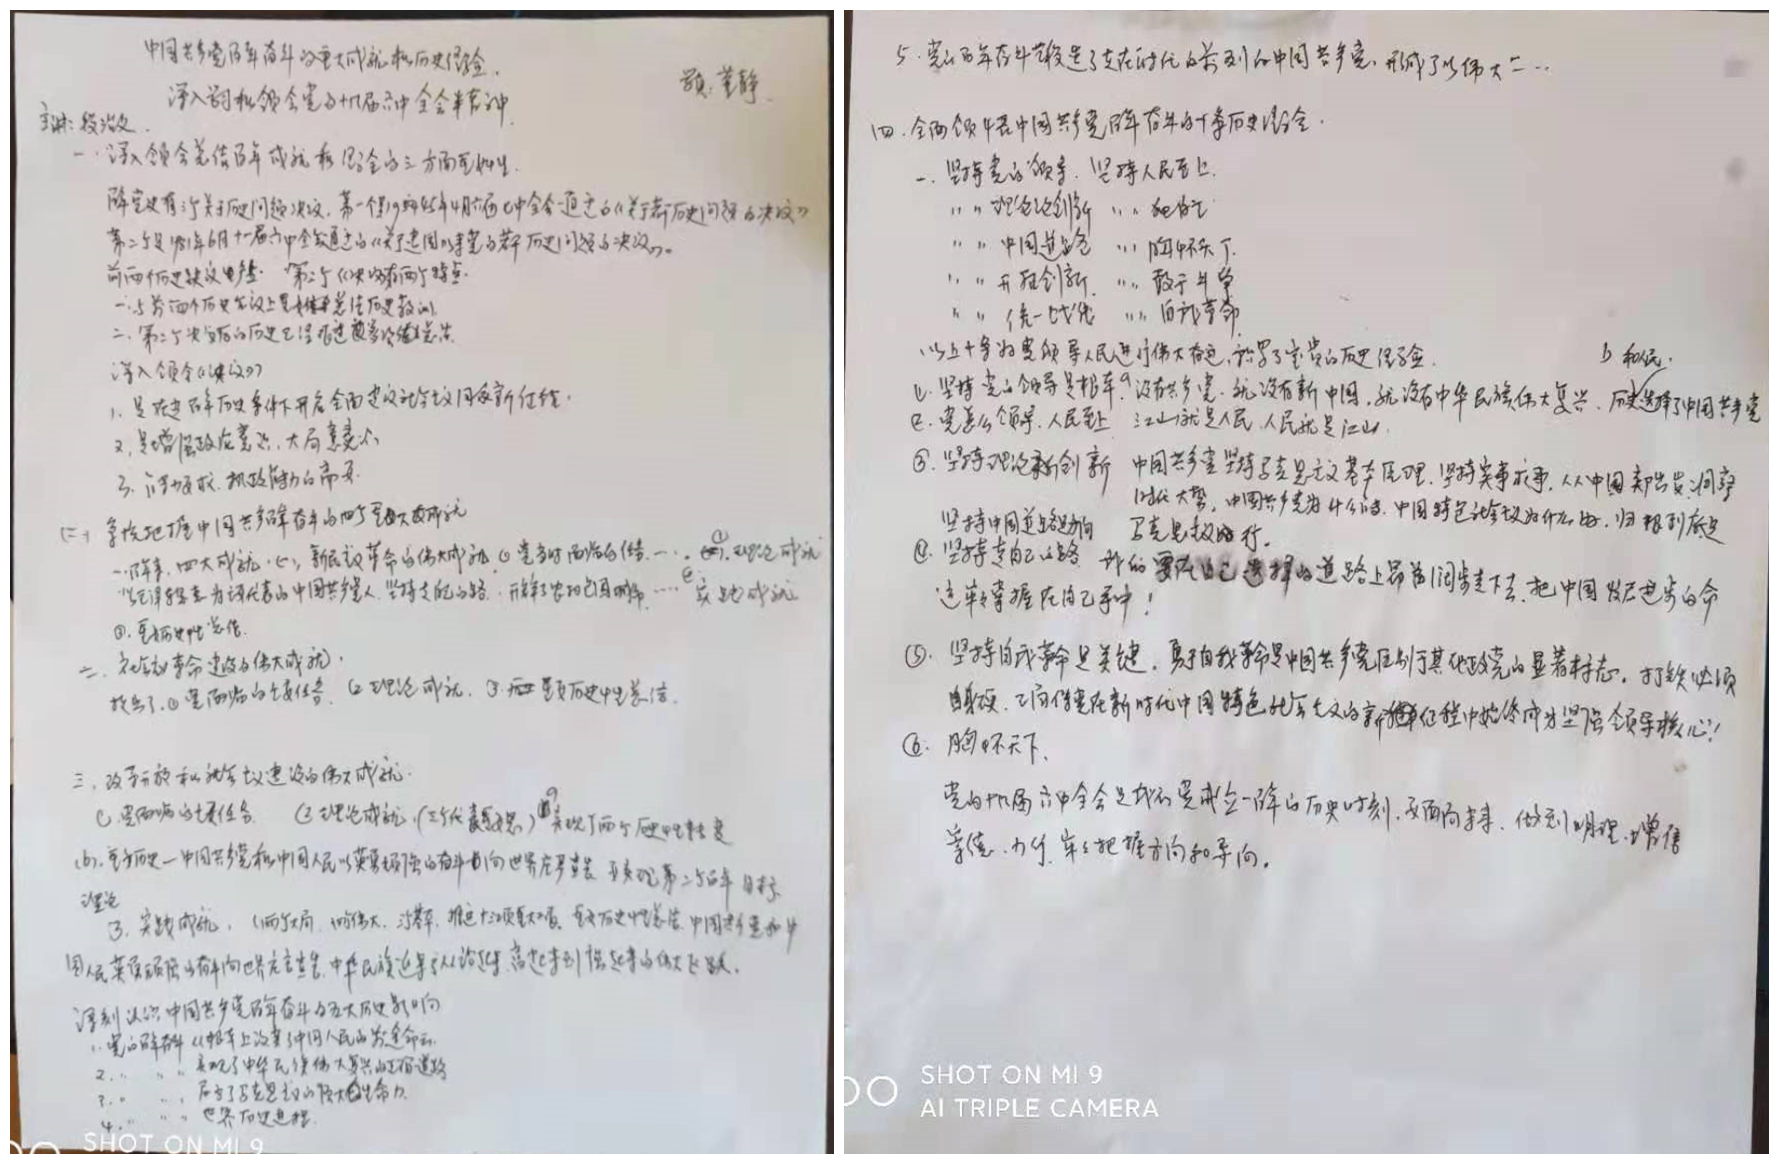 中国共产党百年奋斗的重大成就和历史经验。
深入学习和领会党的十九届六中全会精神
董静
主讲:
一. 深入领会总结百年成就和经验的三方面重要性.
党史有三个关于历史问题决议, 第一个是1945年4月六届七中全会通过的《关于若干历史问题的决议》
第二个是1981年6月十一届六中全会通过的《关于建国以来党的若干历史问题的决议》。
前两个历史决议 第三个《决议》有两个特点.
一.与前两个历史决议上是总结历史教训.
二. 第三个决议
深入领会《决议》
1. 是在建百年历史条件下开启全面建设社会主义国家新征程.
2. 是增强政治意识, 大局意识
3.
(二) 掌握中国共产党百年奋斗的四个重大成就
一. 四大成就. (一), 新民主主义革命的伟大成就 ① 党当时面临的任务 …… ①. 理论成就
为代表的中国共产党人, 坚持走自己的路. …… ② 实践成就
③. 重要历史性总结.
二. 社会主义革命建设的伟大成就.
①党面临的主要任务. ②理论成就. ③ 重要历史性总结.
三. 改革开放和社会主义建设的伟大成就.
①党面临的主要任务. ②理论成就. (三个代表思想) 实现了两个历史性转变
历史一中国共产党和中国人民以英勇顽强的奋斗向世界庄严宣告 实现第二个百年目标
理论
3. 实践成就, 重要历史性总结. 中国共产党和中
国人民英勇顽强的奋斗向世界庄严宣告, 中华民族迎来了从站起来, 富起来到强起来的伟大飞跃.
深刻认识中国共产党百年奋斗的五大历史影响
1. 党的百年奋斗从根本上改变了中国人民的前途命运.
2. 〃 〃 〃 实现了中华民族伟大复兴的正确道路
3. 〃 〃 〃 展示了马克思主义的强大生命力
4. 〃 〃 〃 世界历史进程.
SHOT ON MI 9
5. 党的百年奋斗锻造了走在时代的前列的中国共产党, 形成了以伟大二…
四. 全面领悟中国共产党百年奋斗的十条历史经验.
一. 坚持党的领导. 坚持人民至上.
〃 〃 理论创新 〃 〃 独自主
〃 〃 中国道路 〃 〃 胸怀天下.
〃 〃 开拓创新. 〃 〃 敢于斗争
〃 〃 统一战线 〃 〃 自我革命
以上十条为党领导人民进行伟大奋进, 积累了宝贵的历史经验.
和人民.
①. 坚持党的领导是根本. 没有共产党. 就没有新中国, 就没有中华民族伟大复兴. 历史选择了中国共产党
②. 党怎么领导, 人民至上 江山就是人民, 人民就是江山.
③. 坚持理论创新 中国共产党坚持马克思主义基本原理. 坚持实事求事, 从中国实际出发, 洞察
时代大势, 中国共产党为什么能, 中国特色社会主义为什么好, 归根到底是
坚持中国道路方向 马克思主义好行.
④. 坚持走自己的路 我们要在自己选择的道路上昂首阔步走下去, 把中国发展进步的命
运牢牢掌握在自己手中!
⑤. 坚持自我革命是关键. 勇于自我革命是中国共产党区别于其他政党的显著标志, 打铁必须
自身硬. 确保党在新时代中国特色社会主义的新征程中始终成为坚强领导核心!
⑥. 胸怀天下.
党的十九届六中全会是我们党成立一百年的历史时刻, 做到明理、增信
崇德、力行, 牢牢把握方向和导向.
SHOT ON MI 9
AI TRIPLE CAMERA